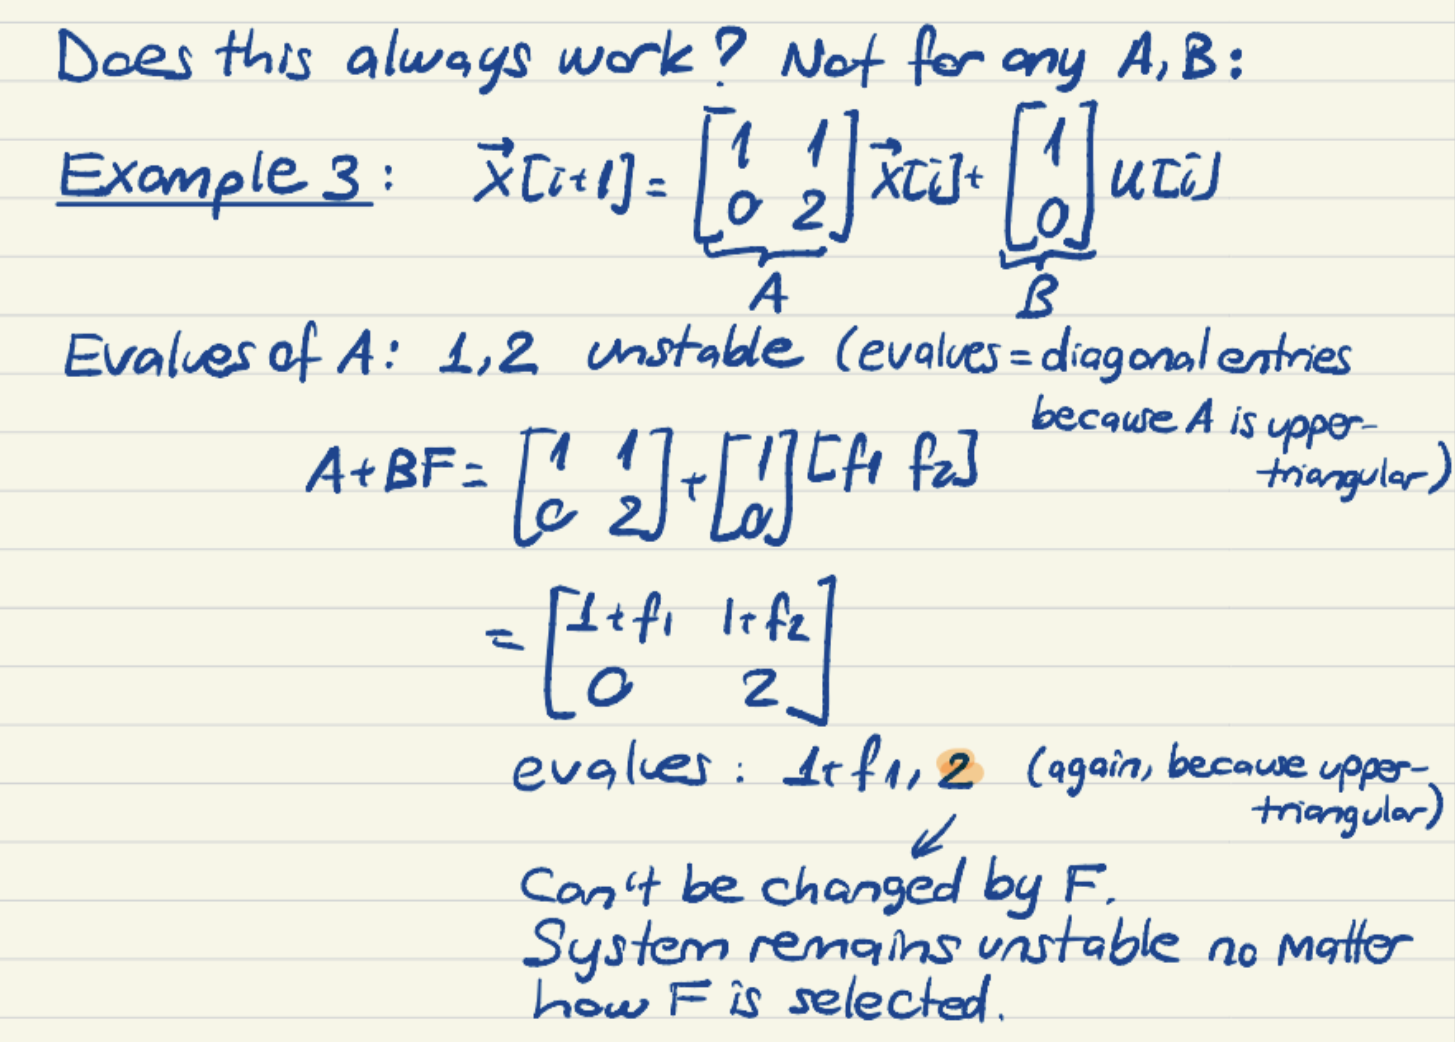 Does this always work? Not for any A, B:
Example 3: x⃗[i+1] = [1 1; 0 2] x⃗[i] + [1; 0] u[i]
A B
Evalues of A: 1, 2 unstable (evalues = diagonal entries
because A is upper-
triangular)
A+BF = [1 1; 0 2] + [1; 0] [f1 f2]
= [1+f1 1+f2; 0 2]
evalues: 1+f1, 2 (again, because upper-
triangular)
Can't be changed by F.
System remains unstable no matter
how F is selected.